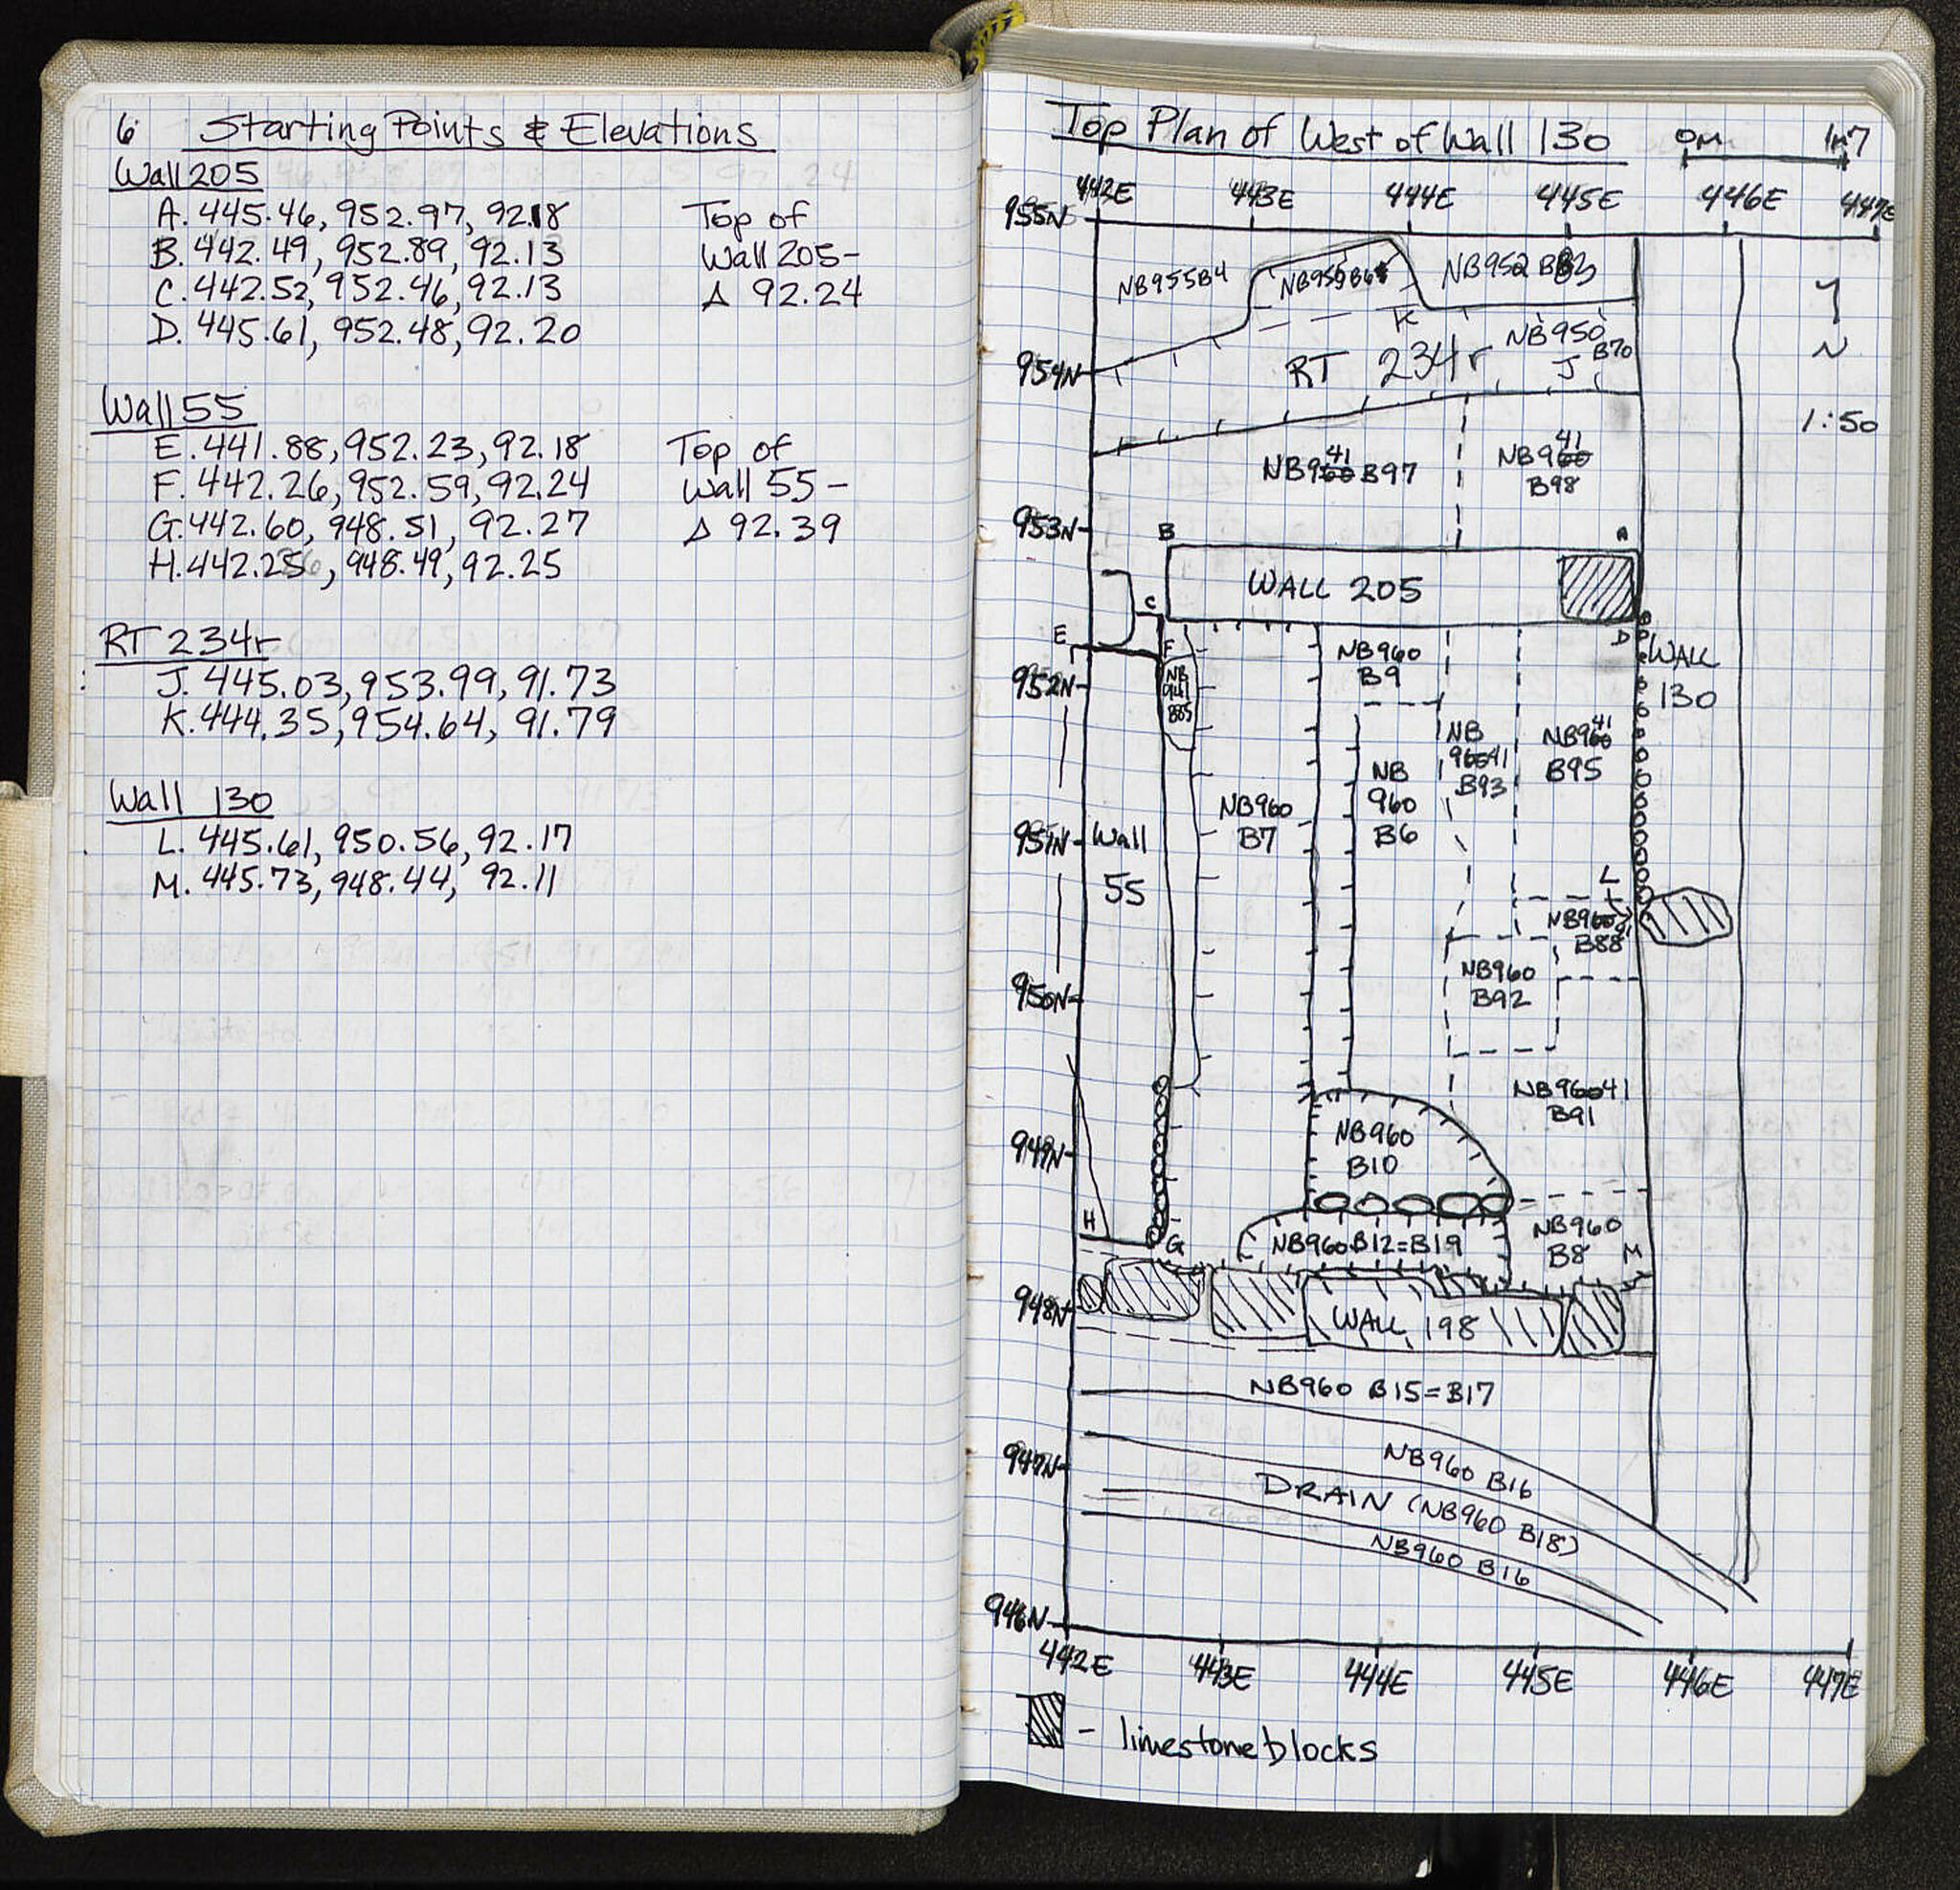 6 Starting Points & Elevations
Wall 205
A. 445.46, 952.97, 92.18
B. 442.49, 952.89, 92.13
C. 442.52, 952.46, 92.13
D. 445.61, 952.48, 92.20
Top of
Wall 205-
Δ 92.24
Wall 55
E. 441.88, 952.23, 92.18
F. 442.26, 952.59, 92.24
G. 442.60, 948.51, 92.27
H. 442.25, 948.49, 92.25
Top of
Wall 55-
Δ 92.39
RT 234r
J. 445.03, 953.99, 91.73
K. 444.35, 954.64, 91.79
Wall 130
L. 445.61, 950.56, 92.17
M. 445.73, 948.44, 92.11
Top Plan of West of Wall 130
0M 1M 7
442E 443E 444E 445E 446E 447E
955N
NB955B4
K
RT 234r
NB950
B70
J
N
1:50
954N
NB941 B97
NB941
B98
953N
B
A
WALL 205
C
D
E
F
WALL
130
952N
NB
941
B85
NB960
B9
NB
9641
B93
NB941
B95
NB960
B7
NB
960
B6
951N
Wall
55
L
B88
NB960
B92
950N
NB96041
B91
949N
NB960
B10
H
G
NB960 B12=B19
NB960
B8
M
948N
WALL 198
NB960 B15=B17
947N
NB960 B16
DRAIN (NB960 B18)
NB960 B16
946N
442E 443E 444E 445E 446E 447E
- limestone blocks